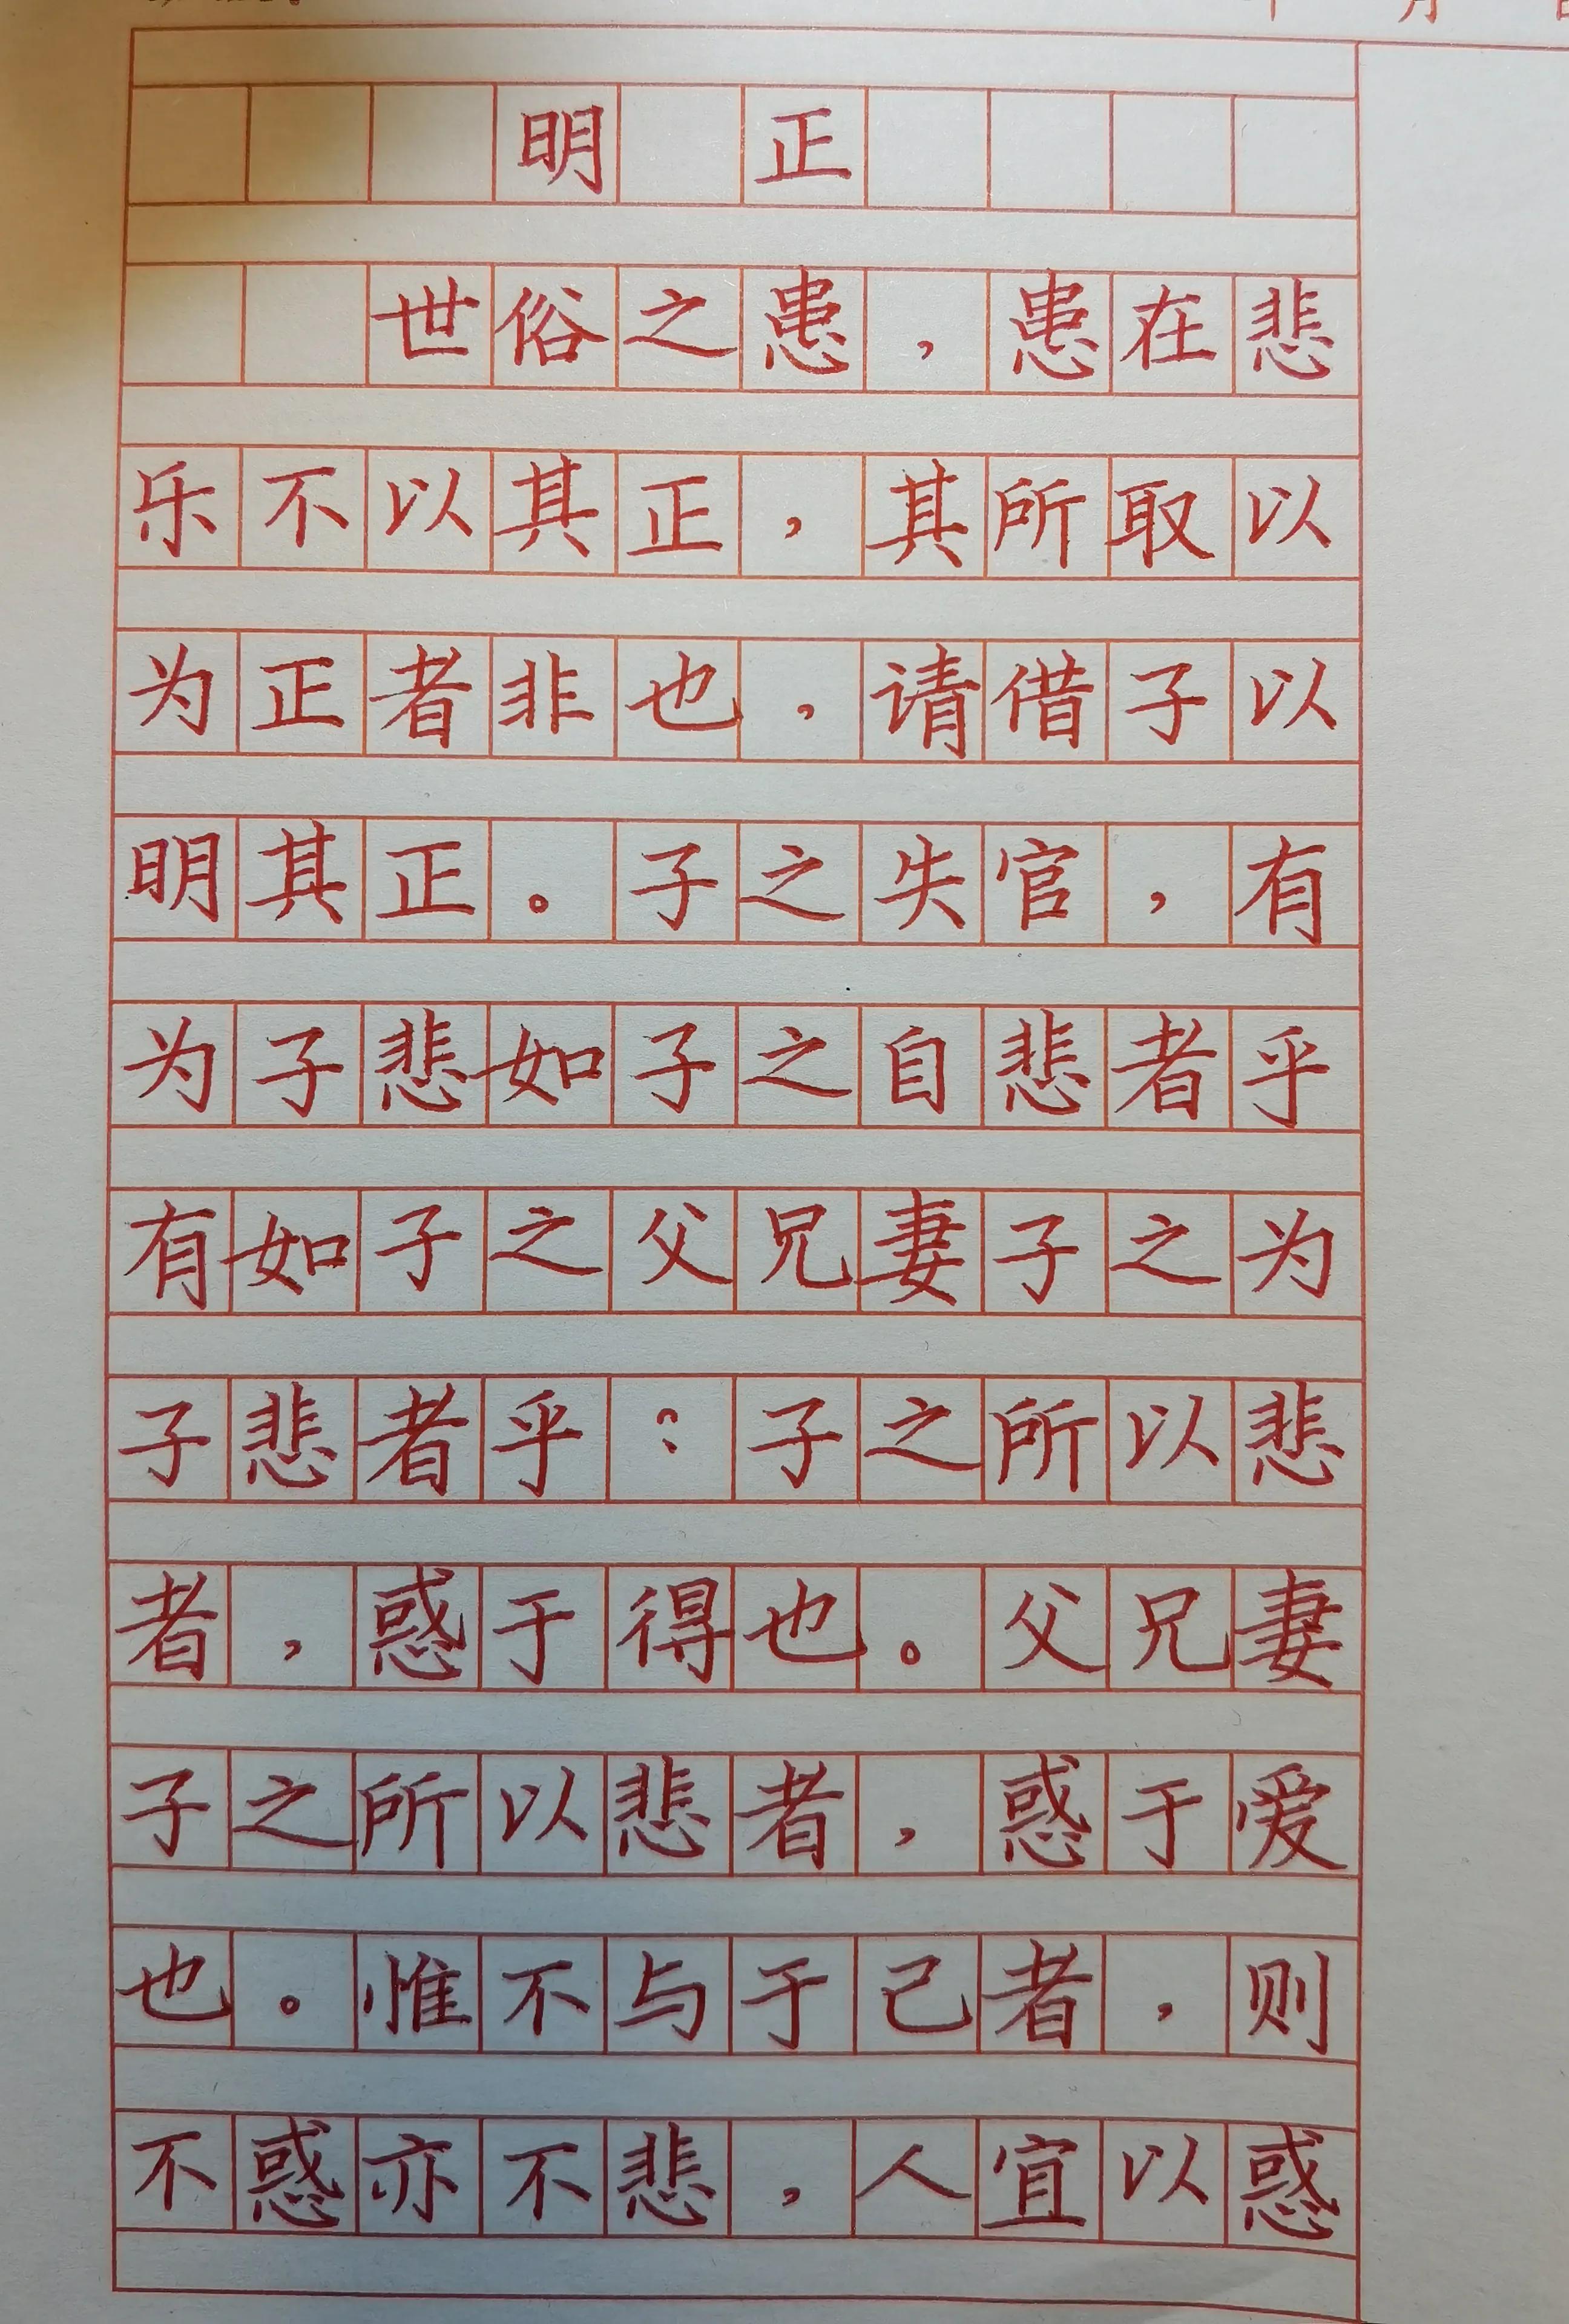 月
明 正
世俗之患，患在悲
乐不以其正，其所取以
为正者非也，请借子以
明其正。子之失官，有
为子悲如子之自悲者乎
有如子之父兄妻子之为
子悲者乎？子之所以悲
者，惑于得也。父兄妻
子之所以悲者，惑于爱
也。惟不与于己者，则
不惑亦不悲，人宜以惑